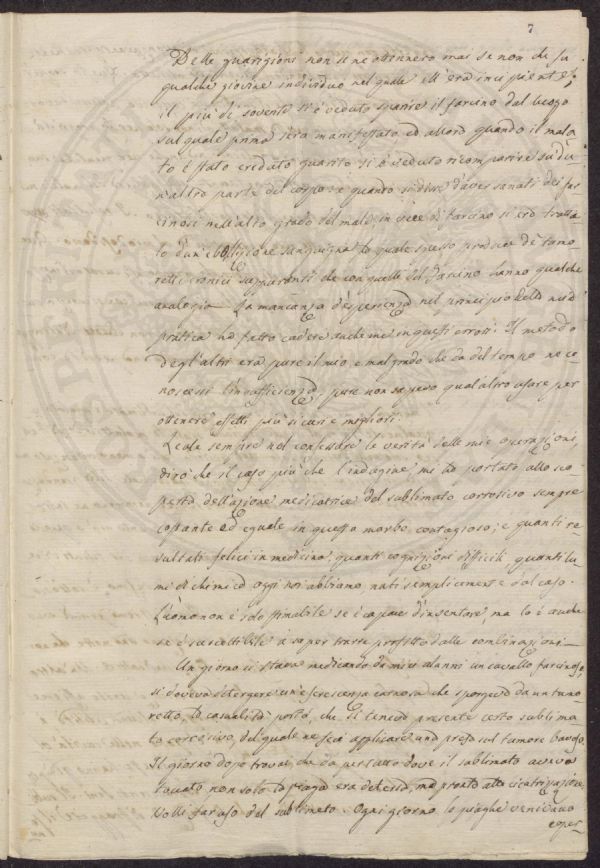 7
Delle guarigioni non se ne ottennero mai se non che su
qualche giovine individuo nel quale ell'era incipiente;
il più di sovente si è veduto sparire il farcino dal luogo
sul quale prima s'era manifestato ed allora quando il mala-
to è stato creduto guarito si è veduto ricomparire su d'u
n'altra parte del corpo: e quanto si dice d'aver sanati dei far
cinosi nell'alto grado del male, in vece di farcino si era tratta-
to d'un'ebollizione sanguigna la quale spesso produce de' tumo-
retti cronici suppuranti che con quelli del farcino hanno qualche
analogia — La mancanza d'esperienza nel principio della mia
pratica ha fatto cadere anche me in questi errori. Il metodo
degl'altri era pure il mio e malgrado che da del tempo ne co-
noscessi l'insufficienza, pure non sapevo qual'altro usare per
ottenere effetti più sicuri e migliori.
Leale sempre nel confessare la verità delle mie operazioni,
dirò che il caso più che l'indagine mi ha portato alla sco-
perta dell'azione medicatrice del sublimato corrosivo sempre
costante ed eguale in questo morbo contagioso; e quanti re-
sultati felici in medicina, quanti cognizioni difficili quanti lu-
mi di chimica oggi noi abbiamo nati semplicemente dal caso.
L'uomo non è solo stimabile se è capace d'inventare, ma lo è anche
se è suscettibile a saper trarre profitto dalle combinazioni —
Un giorno si stava medicando da miei alunni un cavallo farcinoso,
si doveva detergere un'escrescenza carnosa che sporgeva da un tumo-
retto, la casualità portò, che si teneva presente certo sublima-
to corrosivo, del quale ne feci applicare una presa sul tumore bavoso.
Il giorno dopo trovai che da per tutto dove il sublimato aveva
toccato non solo la piaga era detersa, ma pronta alla cicatrizazione
Volli far uso del sublimato. Ogni giorno le piaghe venivano